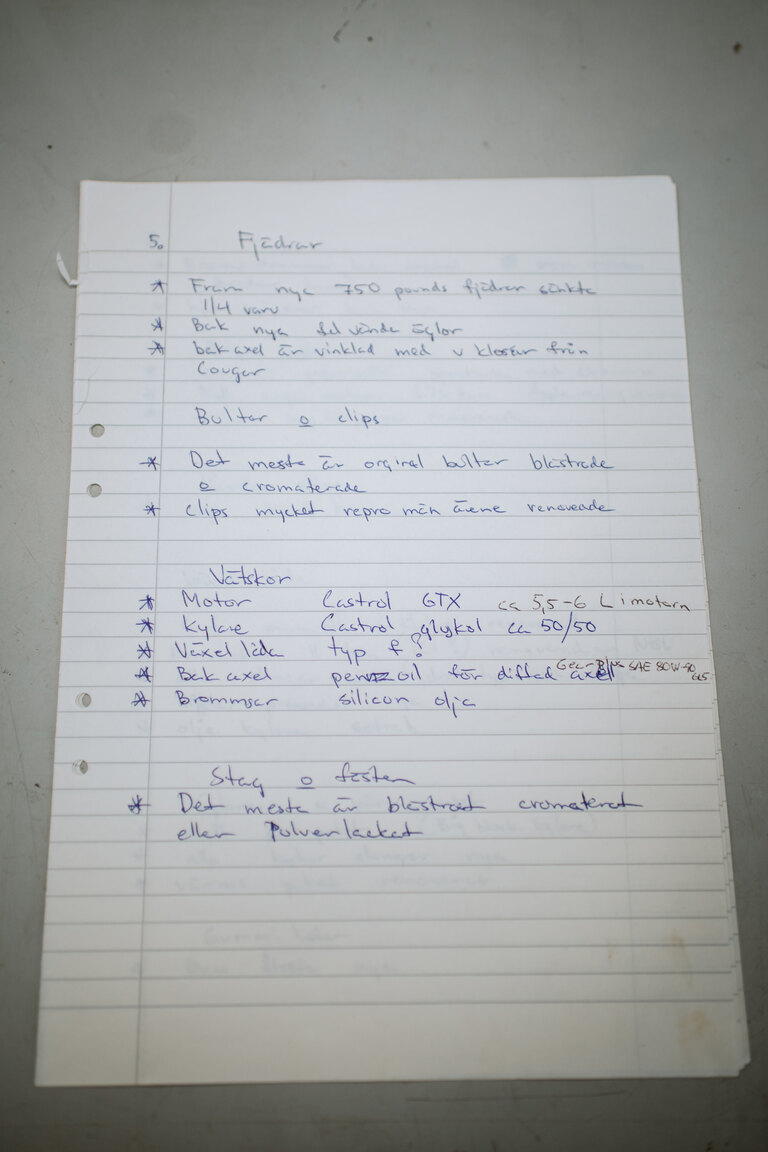 5. Fjädrar
* Fram nya 750 pounds fjädrar sänkta
1/4 varv
* Bak nya vända öglor
* bakaxel är vinklad med v klossar från
Cougar
Bultar o clips
* Det mesta är orginal bultar blästrade
o cromaterade
* Clips mycket repro män även renoverade
Vätskor
* Motor Castrol GTX ca 5,5-6 L i motorn
* Kylare Castrol glykol ca 50/50
* Växel låda typ f?
* Bak axel pennzoil för diffad axel Gear Plus SAE 80W-90 GL5
* Brommsar silicon olja
Stag o fästen
* Det mesta är blästrat cromaterat
eller Pulverlackat